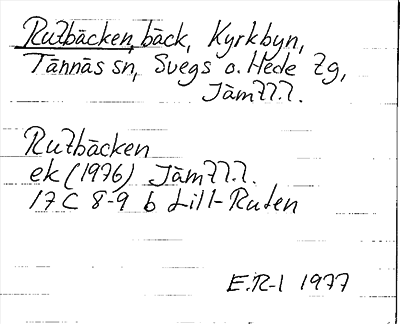 Rutbäcken, bäck, Kyrkbyn,
Tännäs sn, Svegs o. Hede tg,
Jämtl.l.
Rutbäcken
ek (1976) Jämtl.l.
17 C 8-9 b Lill-Ruten
E.R-l 1977